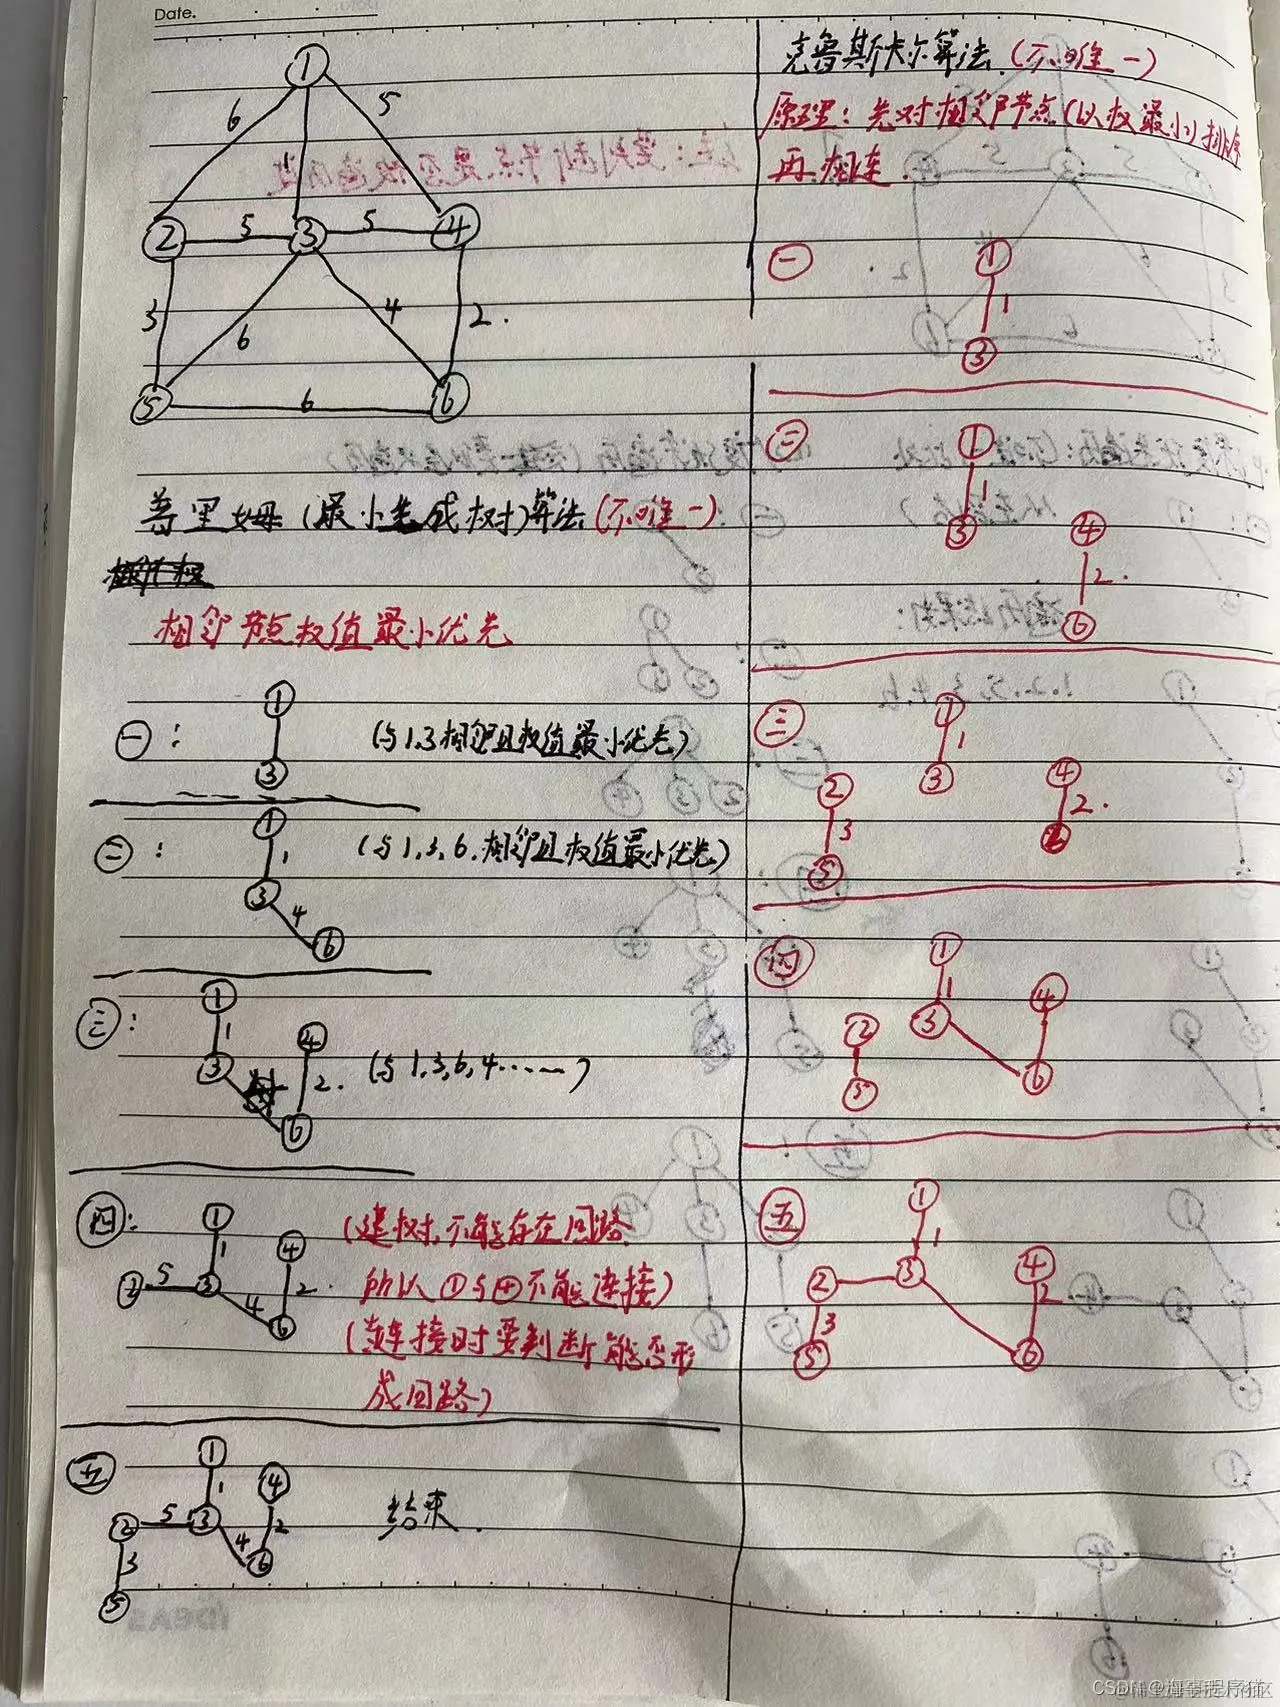 Date.
1
6
5
1
2
5
3
5
4
3
6
4
2.
5
6
6
普里姆(最小生成树)算法(不唯一)
相邻节点权值最小优先
一:
1
3
(与1,3相邻且权值最小优先)
二:
1
1
3
4
6
(与1,3,6,相邻且权值最小优先)
三:
1
1
3
4
2.
6
(与1,3,6,4……)
四:
1
1
2
5
3
4
4
2.
6
(建树,不能存在回路
所以①与④不能连接)
(连接时要判断能否形
成回路)
五
1
1
2
5
3
4
4
2
6
3
5
结束.
克鲁斯卡尔算法.(不唯一)
原理:先对相邻节点(以权最小)排序
再相连.
一
1
1
3
二
1
1
3
4
2.
6
三
1
1
3
2
3
5
4
2.
四
1
1
3
4
6
2
5
五
1
1
3
2
3
5
4
2
6
CSDN @海事程序猫